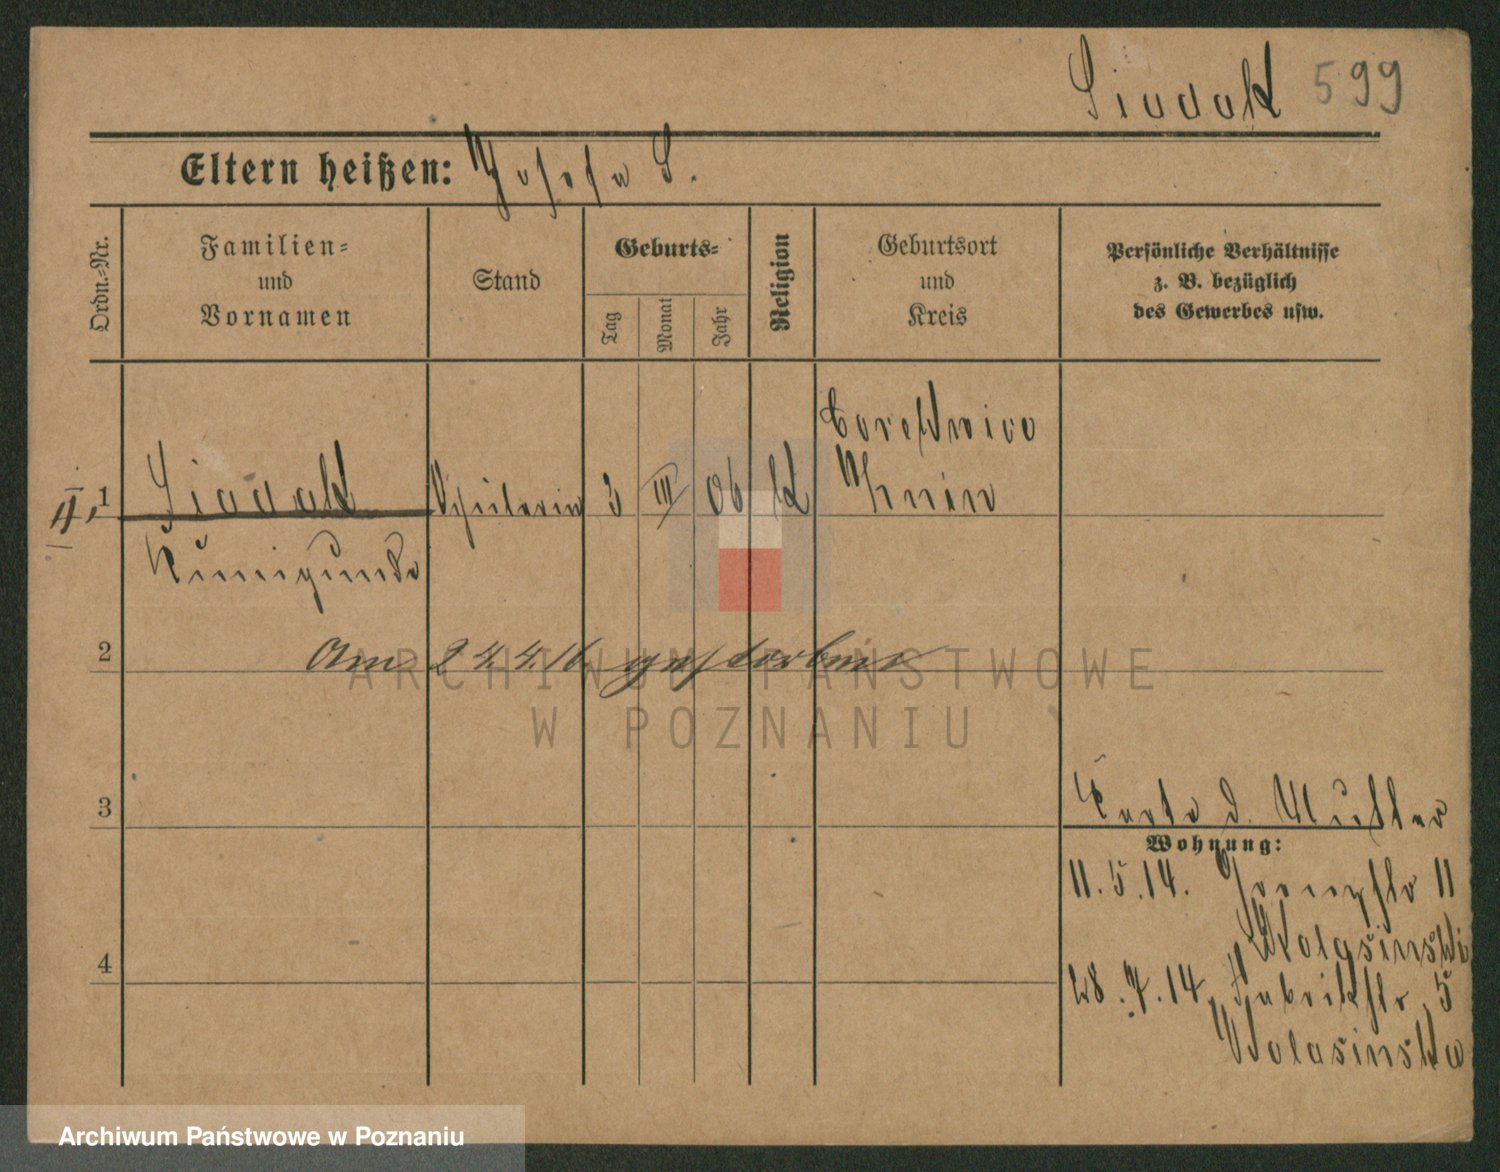 Siodak 599
Eltern heißen: Josefa S.
Ordn.-Nr.
Familien-
und
Vornamen
Stand
Geburts-
Tag
Monat
Jahr
Religion
Geburtsort
und
Kreis
Persönliche Verhältnisse
z. B. bezüglich
des Gewerbes usw.
1
Siodak
Schülerin
3
III
06
K
Znin
Kunigunde
2
Am 24.4.16 gestorben
ARCHIWUM PAŃSTWOWE
W POZNANIU
3
Karte d. Mutter
Wohnung:
11.5.14. 11
Wolasinski
4
28.7.14. Fabrikstr 5
Wolasinska
Archiwum Państwowe w Poznaniu